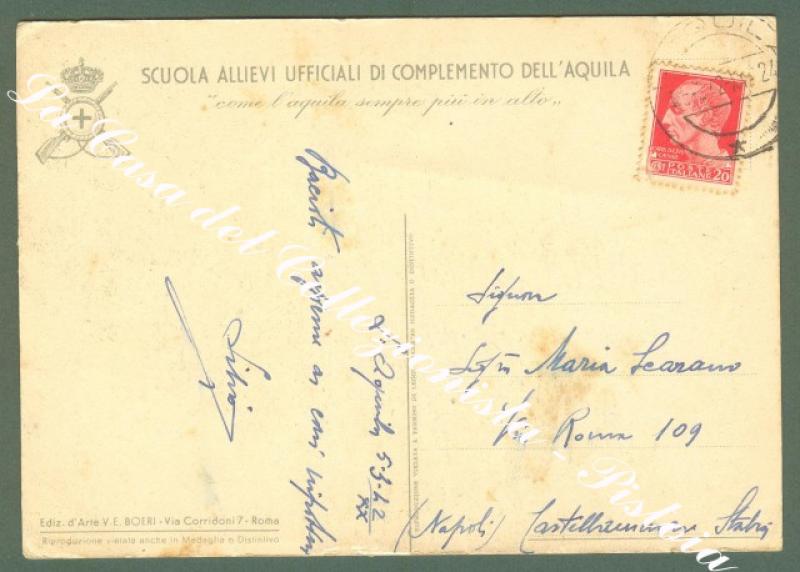 SCUOLA ALLIEVI UFFICIALI DI COMPLEMENTO DELL'AQUILA
"come l'aquila sempre più in alto„
POSTE
ITALIANE 20
L'Aquila 5-3-42
XX
Bacioti assieme ai cari nipotini
Silvio
Signora
Maria Scarano
Via Roma 109
(Napoli) Castellammare Stabia
Ediz. d'Arte V. E. BOERI - Via Corridoni 7 - Roma
Riproduzione vietata anche in Medaglia o Distintivo
RIPRODUZIONE VIETATA A TERMINI DI LEGGE ANCHE IN MEDAGLIA O DISTINTIVO
La Casa del Collezionista - Pistoia